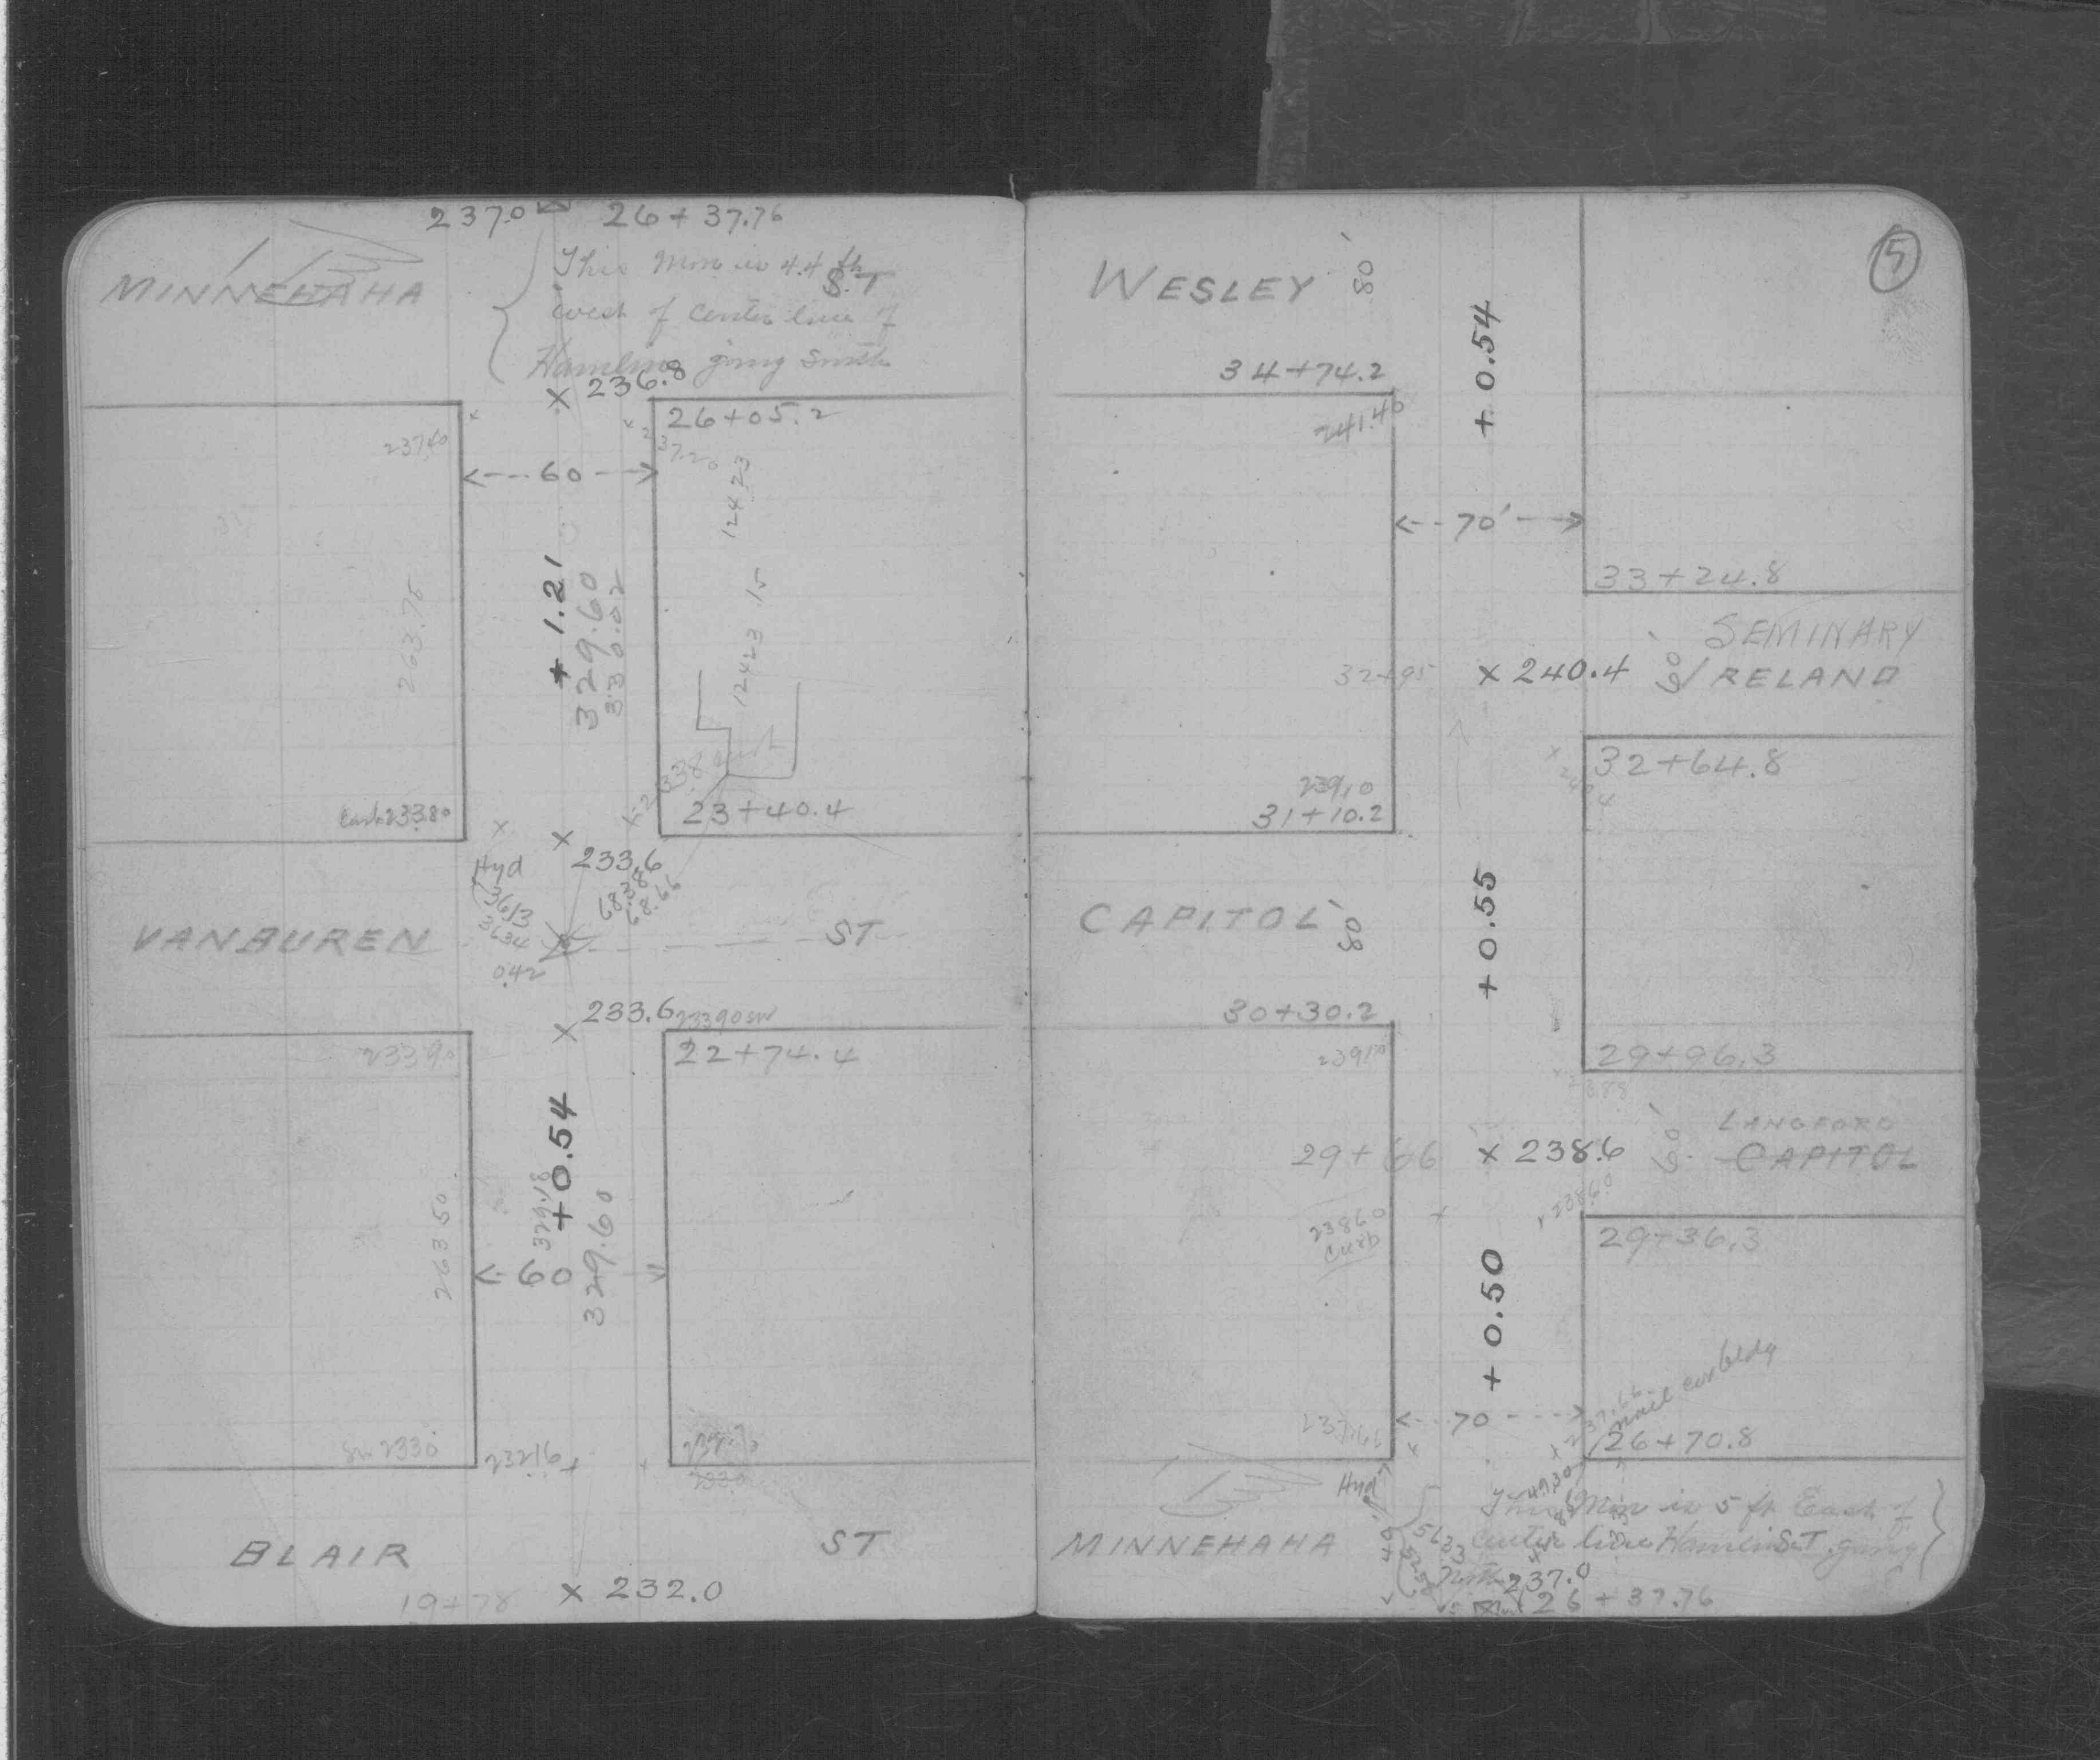 237.0 26+37.76
MINNEHAHA
This Mon is 4.4 ft
S.T
west of Center line of
Hamline going South
x 236.8
26+05.2
237.40
237.20
<---60--->
124.23
+ 1.21
329.60
330.02
263.75
124.23 .15
233.8
23+40.4
Curb 233.80
x 233.6
Hyd
36.13
36.34
0.42
68.38
68.66
VANBUREN ST
x 233.6
233.90
22+74.4
233.90
+0.54
329.18
329.60
263.50
<-60->
233.0
232.16
233.0
BLAIR ST
19+78
x 232.0
5
WESLEY 80'
+0.54
34+74.2
241.40
<--70'-->
33+24.8
SEMINARY
IRELAND
60'
32+95
x 240.4
32+64.8
239.10
31+10.2
CAPITOL 80'
+0.55
30+30.2
239.10
29+96.3
238.8
LANGFORD
CAPITOL
60'
29+66
x 238.6
238.60
238.60
Curb
29+36.3
+0.50
nail cor bldg
237.66
237.66
<---70--->
26+70.8
Hyd
49.30
This Mon is 5 ft East of
center line Hamline ST. going
North
MINNEHAHA
237.0
26+37.76